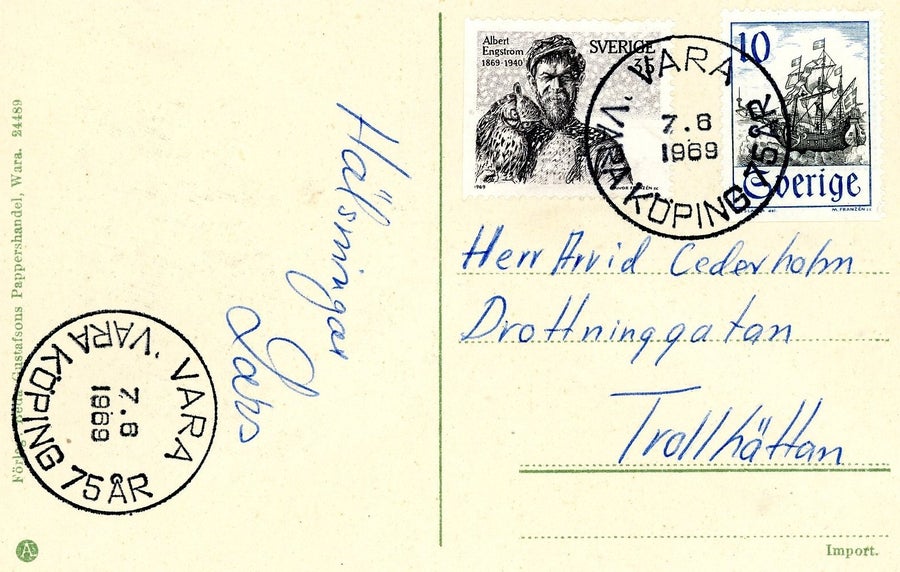 Albert
Engström
1869-1940
SVERIGE
35
1969
10
Sverige
M. FRANZÉN SC
VARA
7.6
1969
"VARA KÖPING 75 ÅR
Hälsningar
Lars
Herr Arvid Cederholm
Drottninggatan
Trollhättan
Import.
Gustafsons Pappershandel, Wara. 24489
VARA
7.6
1969
"VARA KÖPING 75 ÅR